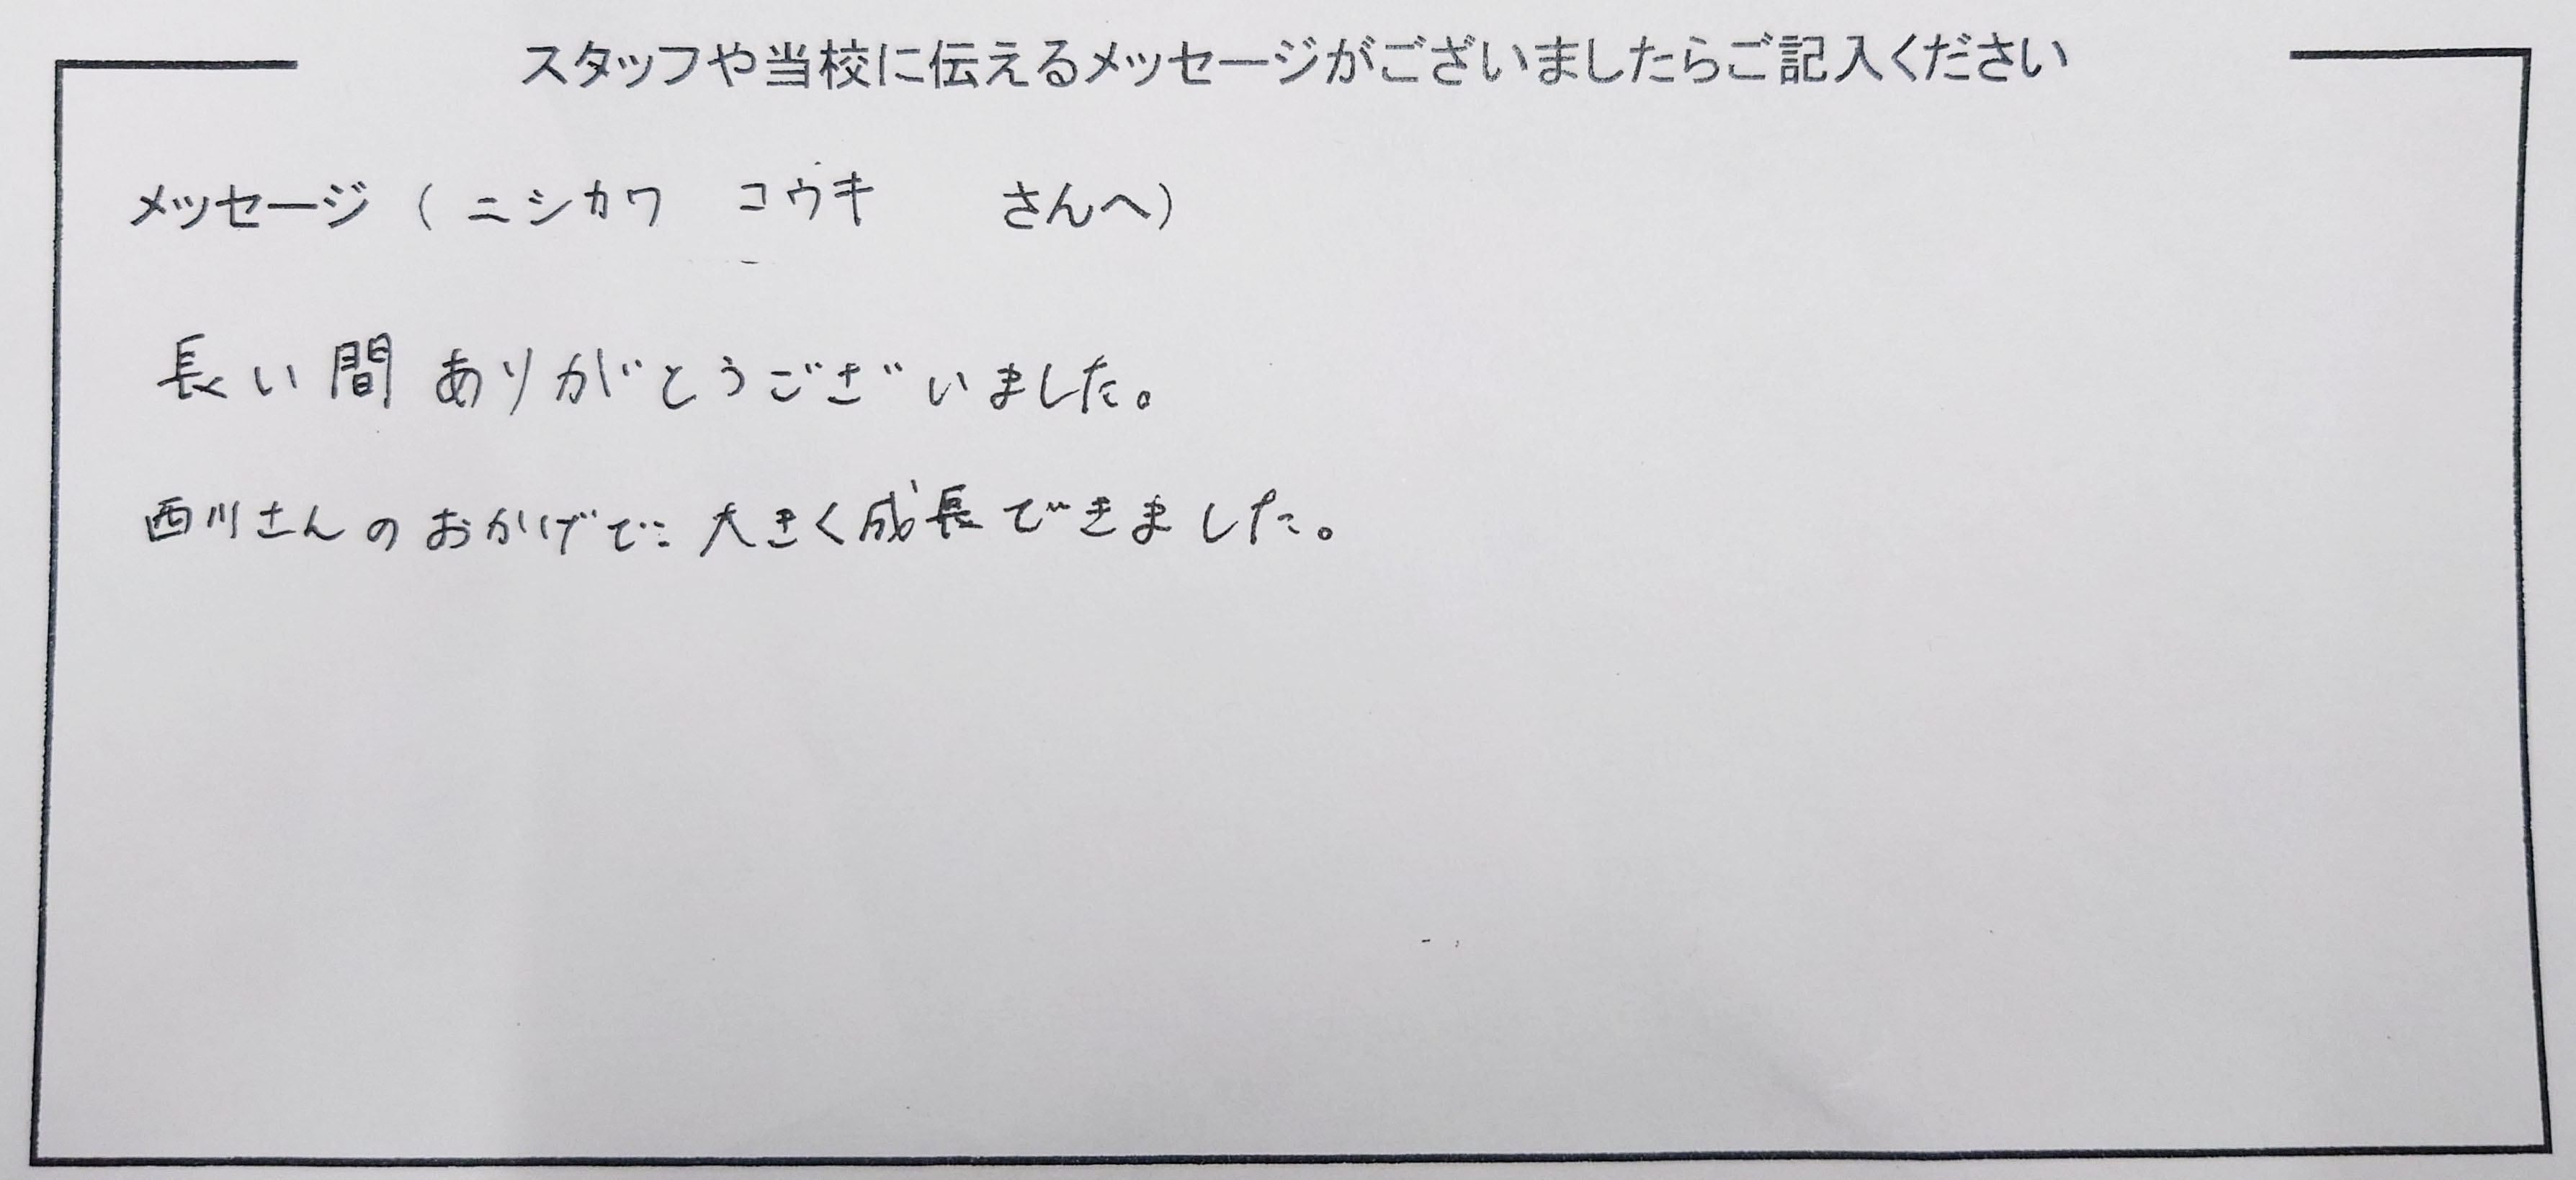 スタッフや当校に伝えるメッセージがございましたらご記入ください
メッセージ（ニシカワ コウキ さんへ）
長い間ありがとうございました。
西川さんのおかげで大きく成長できました。